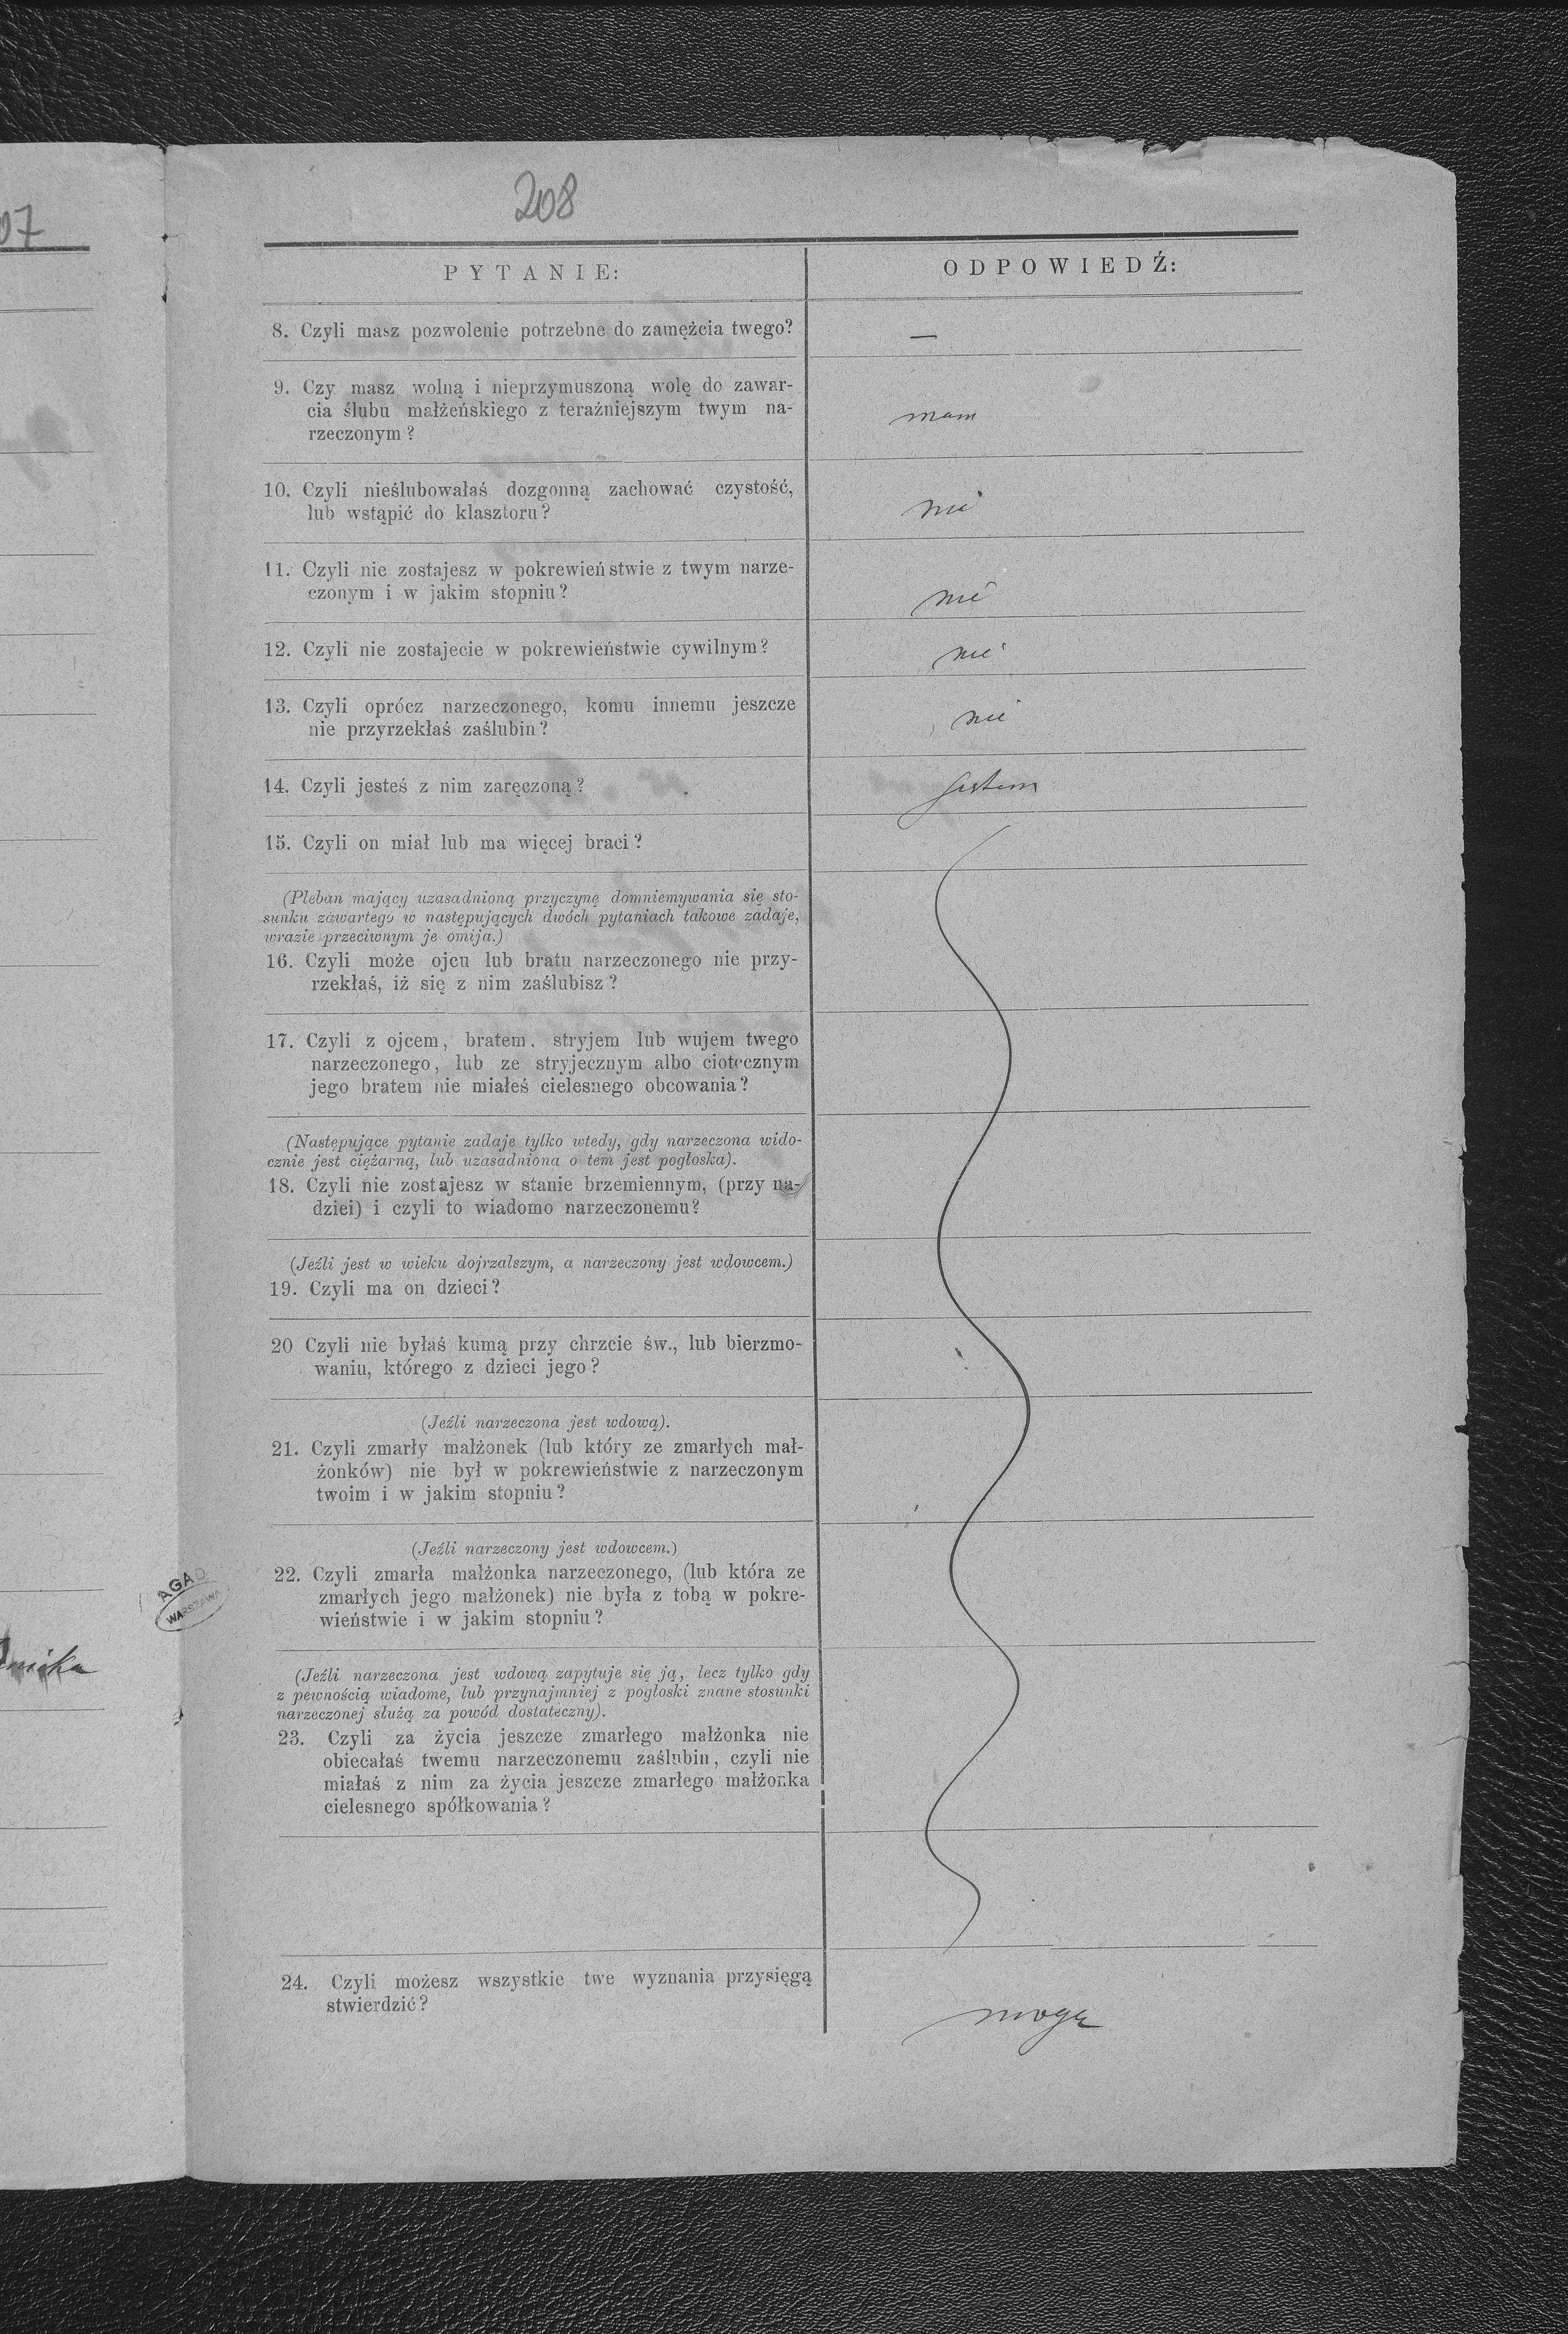 07
208
PYTANIE:
ODPOWIEDŹ:
8. Czyli masz pozwolenie potrzebne do zamężcia twego?
—
9. Czy masz wolną i nieprzymuszoną wolę do zawar-
cia ślubu małżeńskiego z teraźniejszym twym na-
rzeczonym?
mam
10. Czyli nieślubowałaś dozgonną zachować czystość,
lub wstąpić do klasztoru?
nie
11. Czyli nie zostajesz w pokrewieństwie z twym narze-
czonym i w jakim stopniu?
nie
12. Czyli nie zostajecie w pokrewieństwie cywilnym?
nie
13. Czyli oprócz narzeczonego, komu innemu jeszcze
nie przyrzekłaś zaślubin?
nie
14. Czyli jesteś z nim zaręczoną?
jestem
15. Czyli on miał lub ma więcej braci?
(Pleban mający uzasadnioną przyczynę domniemywania się sto-
sunku zawartego w następujących dwóch pytaniach takowe zadaje,
wrazie przeciwnym je omija.)
16. Czyli może ojcu lub bratu narzeczonego nie przy-
rzekłaś, iż się z nim zaślubisz?
17. Czyli z ojcem, bratem. stryjem lub wujem twego
narzeczonego, lub ze stryjecznym albo ciotecznym
jego bratem nie miałeś cielesnego obcowania?
(Następujące pytanie zadaje tylko wtedy, gdy narzeczona wido-
cznie jest ciężarną, lub uzasadniona o tem jest pogłoska).
18. Czyli nie zostajesz w stanie brzemiennym, (przy na-
dziei) i czyli to wiadomo narzeczonemu?
(Jeźli jest w wieku dojrzalszym, a narzeczony jest wdowcem.)
19. Czyli ma on dzieci?
20 Czyli nie byłaś kumą przy chrzcie św., lub bierzmo-
waniu, którego z dzieci jego?
(Jeźli narzeczona jest wdową).
21. Czyli zmarły małżonek (lub który ze zmarłych mał-
żonków) nie był w pokrewieństwie z narzeczonym
twoim i w jakim stopniu?
(Jeźli narzeczony jest wdowcem.)
22. Czyli zmarła małżonka narzeczonego, (lub która ze
zmarłych jego małżonek) nie była z tobą w pokre-
wieństwie i w jakim stopniu?
AGAD
WARSZAWA
(Jeźli narzeczona jest wdową zapytuje się ją, lecz tylko gdy
z pewnością wiadome, lub przynajmniej z pogłoski znane stosunki
narzeczonej służą za powód dostateczny).
23. Czyli za życia jeszcze zmarłego małżonka nie
obiecałaś twemu narzeczonemu zaślubin, czyli nie
miałaś z nim za życia jeszcze zmarłego małżonka
cielesnego spółkowania?
24. Czyli możesz wszystkie twe wyznania przysięgą
stwierdzić?
mogę